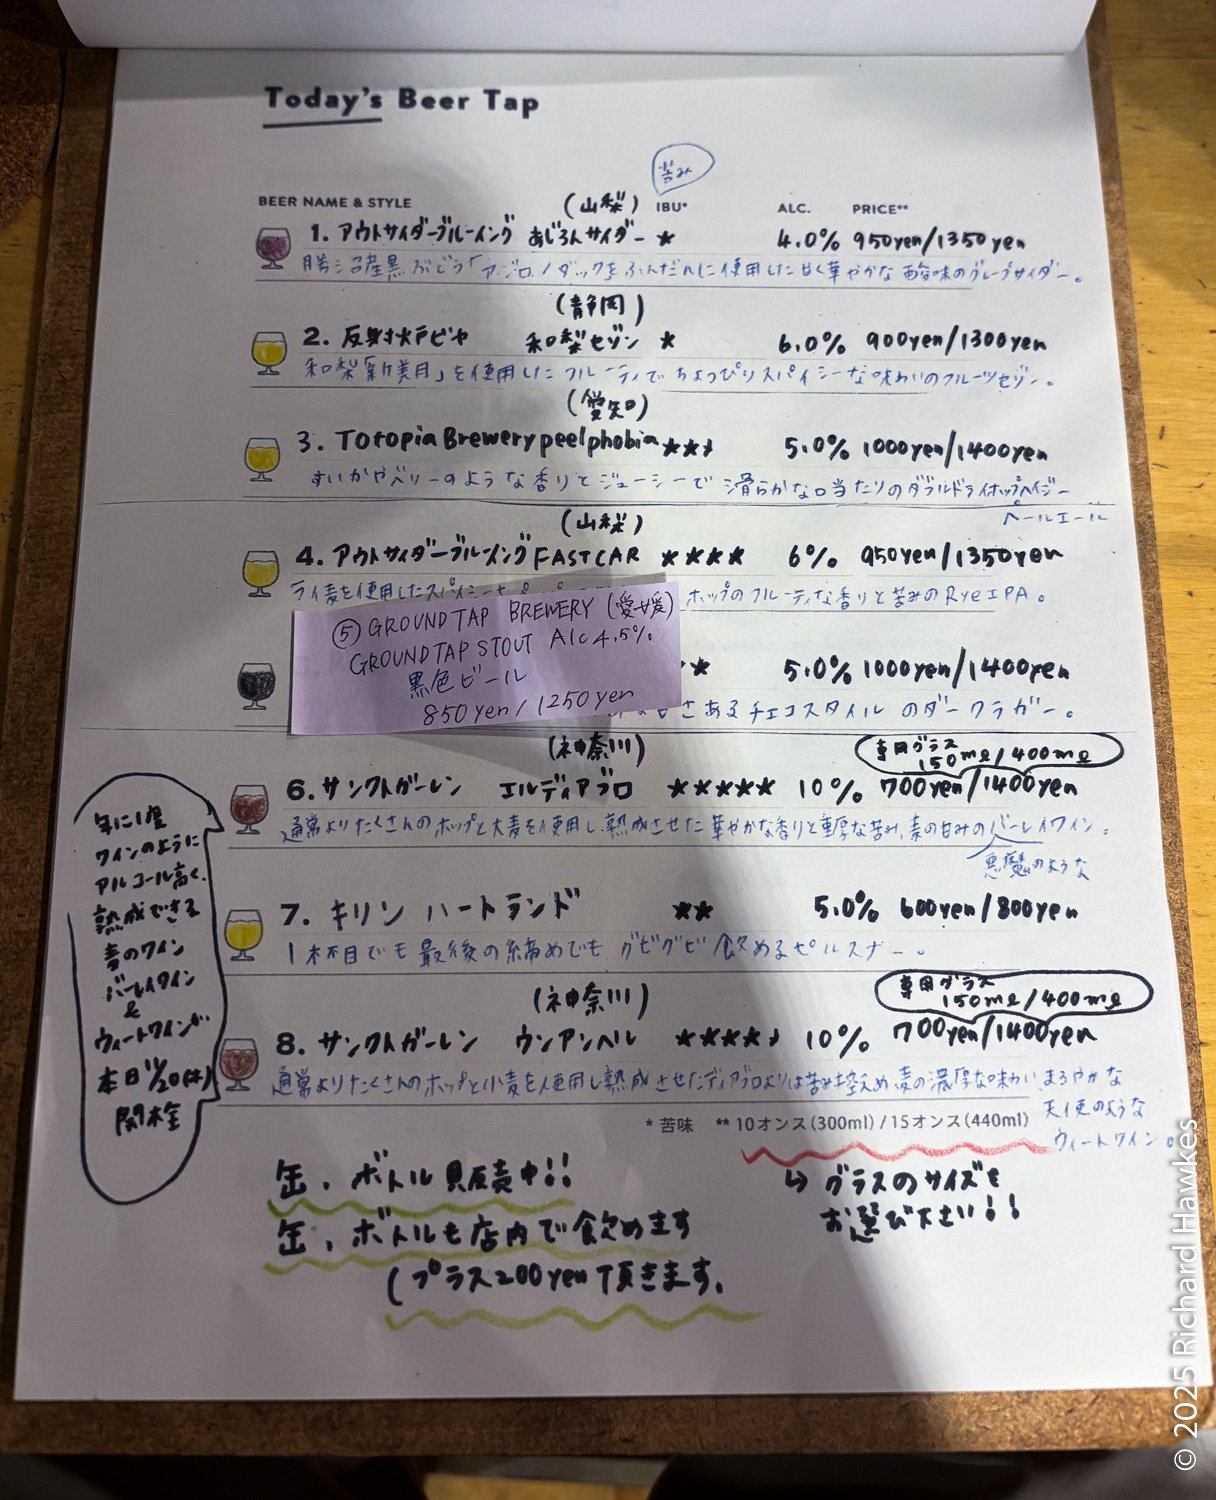 Today's Beer Tap
苦み
BEER NAME & STYLE (山梨) IBU* ALC. PRICE**
1. アウトサイダーブルーイング あじろんサイダー ★ 4.0% 950yen/1350yen
勝沼産黒ぶどう「アジロンダックをふんだんに使用した甘く華やかな酸味のグレープサイダー。
(静岡)
2. 反射炉ビヤ 和梨セゾン ★ 6.0% 900yen/1300yen
和梨「新美月」を使用したフルーティでちょっぴりスパイシーな味わいのフルーツセゾン。
(愛知)
3. Totopia Brewery peelphobia 5.0% 1000yen/1400yen
すいかやベリーのような香りとジューシーで滑らかな口当たりのダブルドライホップヘイジー
ペールエール
(山梨)
4. アウトサイダーブルーイング FASTCAR ★★★★ 6% 950yen/1350yen
ライ麦を使用したスパイシーさ ホップのフルーティな香りと苦みのRye IPA。
⑤ GROUNDTAP BREWERY (愛媛)
GROUNDTAP STOUT Alc 4.5%
黒色ビール
850yen/1250yen
★ 5.0% 1000yen/1400yen
さあるチェコスタイルのダークラガー。
(神奈川) 専用グラス
150ml/400ml
6. サンクトガーレン エルディアブロ ★★★★★ 10% 700yen/1400yen
通常よりたくさんのホップと大麦を使用し熟成させた華やかな香りと重厚な苦み、麦の甘みのバーレイワイン。
悪魔のような
7. キリン ハートランド ★★ 5.0% 600yen/800yen
1杯目でも最後の締めでもグビグビ飲めるピルスナー。
(神奈川) 専用グラス
150ml/400ml
8. サンクトガーレン ウンアンヘル 10% 700yen/1400yen
通常よりたくさんのホップと小麦を使用し熟成させたディアブロよりは苦み控えめ麦の濃厚な味わいまろやかな
天使のような
ウィートワイン。
年に1度
ワインのように
アルコール高く、
熟成できる
麦のワイン
バーレイワイン
&
ウィートワインが
本日11/20(木)
開栓
* 苦味 ** 10オンス(300ml) / 15オンス(440ml)
↳ グラスのサイズを
お選び下さい!!
缶、ボトル販売中!!
缶、ボトルも店内で飲めます
(プラス200yen頂きます。
© 2025 Richard Hawkes